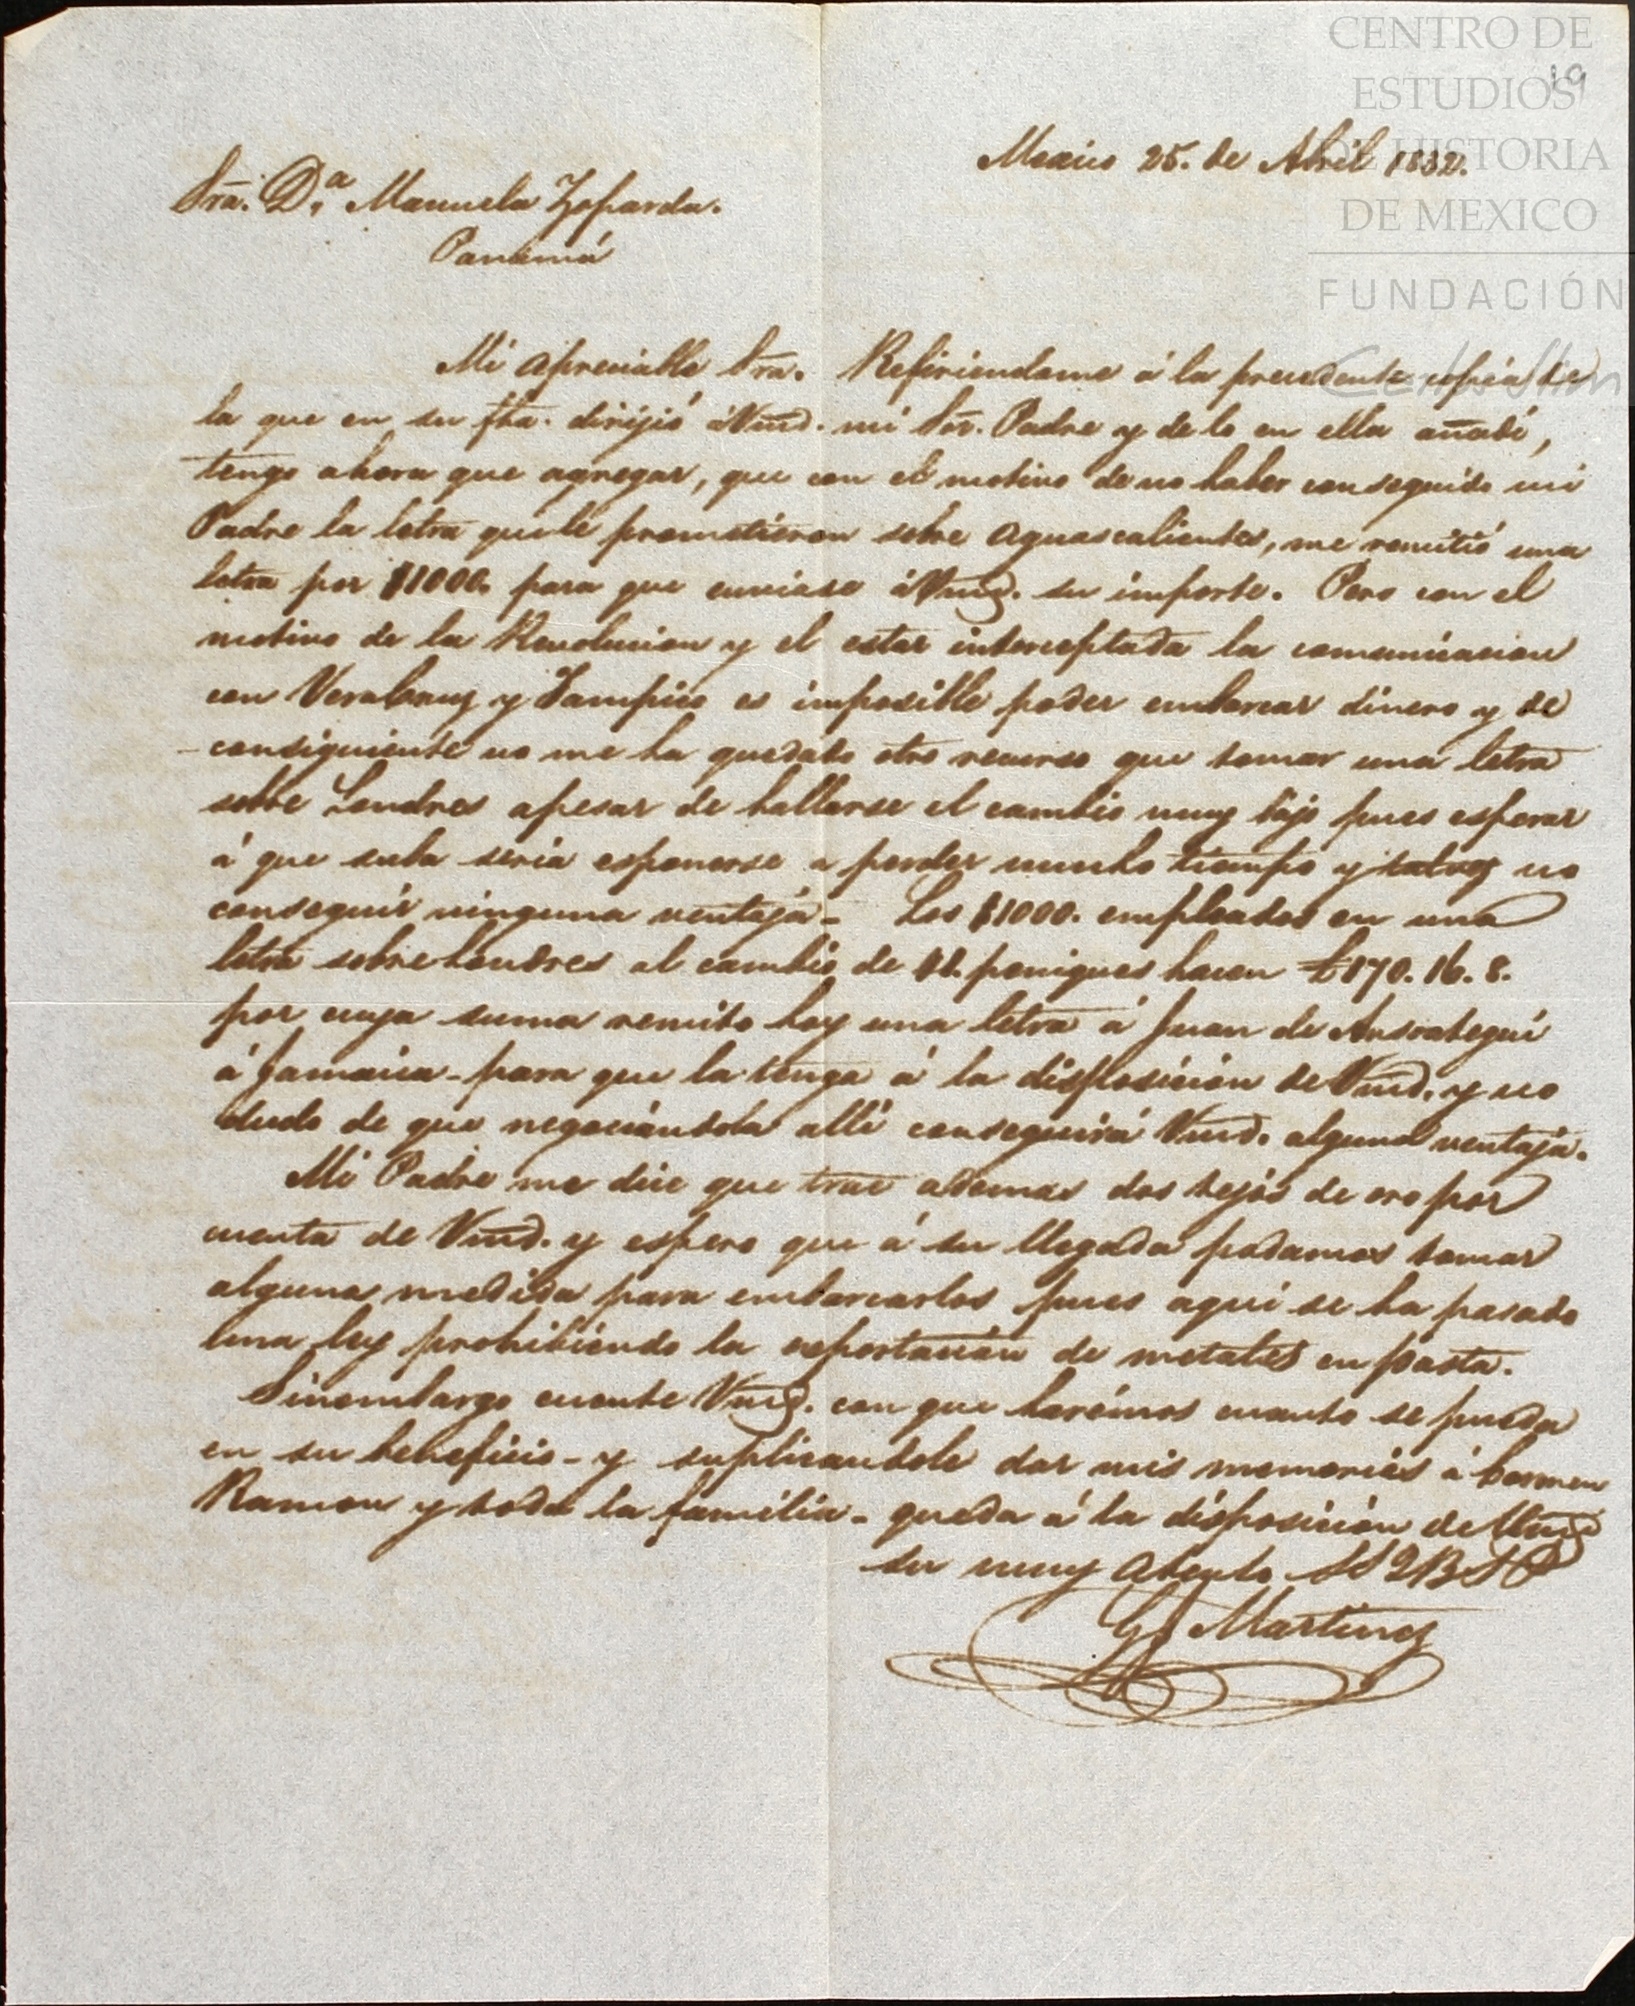 CENTRO DE
ESTUDIOS
DE HISTORIA
DE MEXICO
FUNDACIÓN
19
Mexico 25. de Abril 1832.
Sra. Dª Manuela
Panamá
Mi apreciable Sra. Refiriendome á la precedente copia de
la que en su fha. dirijió á Vmd. mi Sor. Padre y de lo en ella añadí,
tengo ahora que agregar, que con el motivo de no haber conseguido mi
Padre la letra que le prometieron sobre Aguascalientes, me remitió una
letra por $1000. para que enviase á Vmd. su importe. Pero con el
motivo de la Revolucion y el estar interceptada la comunicacion
con Veracruz y Tampico es imposible poder embarcar dinero y de
consiguiente no me ha quedado otro recurso que tomar una letra
sobre Londres apesar de hallarse el cambio muy bajo pues esperar
á que suba seria esponerse a perder mucho tiempo y talvez no
conseguir ninguna ventaja - Los $1000. empleados en una
letra sobre Londres al cambio de 41. peniques hacen £170. 16. 8.
por cuya suma remito hoy una letra á Juan de Ansoategui
á Jamaica - para que la tenga á la disposicion de Vmd. y no
dudo de que negociandola alli conseguirá Vmd. alguna ventaja.
Mi Padre me dice que trae ademas dos tejos de oro por
cuenta de Vmd. y espero que á su llegada podamos tomar
alguna medida para embarcarlos pues aqui se ha pasado
una ley prohibiendo la esportacion de metales en pasta.
Sinembargo cuente Vmd. con que harémos cuanto se pueda
en su beneficio - y suplicandole dar mis memorias á Carmen
Ramon y toda la familia - queda á la disposicion de Vmd
su muy atento SS Q B S P
G Martinez